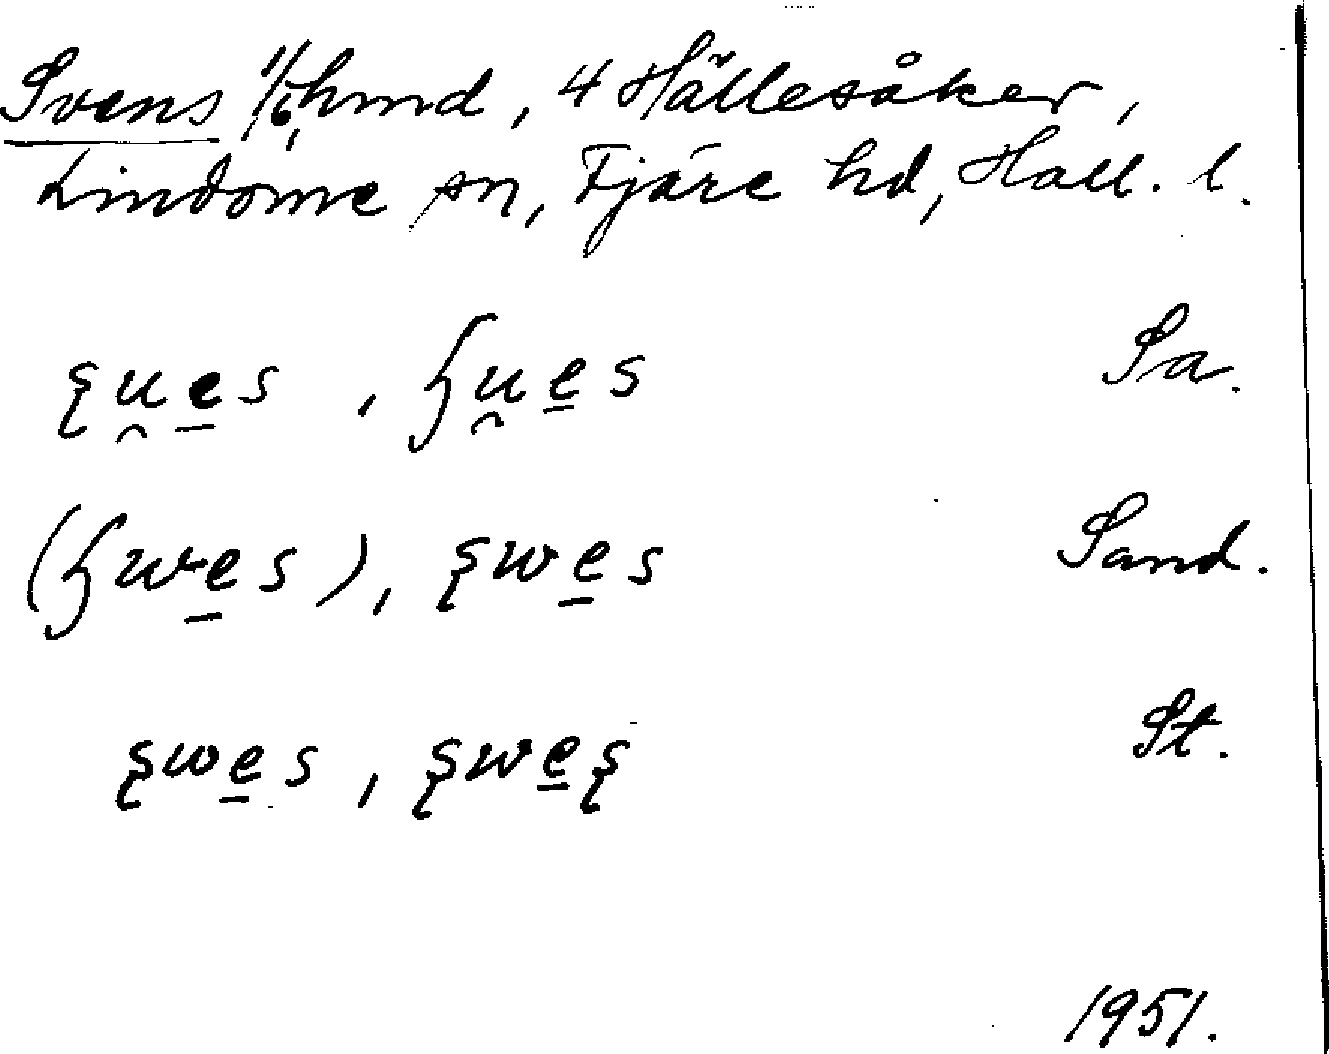 Svens 1/6 hmd, 4 Hällesåker,
Lindome sn, Fjäre hd, Hall. l.
ʂu̯e̠s , ɧu̯e̠s Sa.
(ɧwe̠s), ʂwe̠s Sand.
ʂwe̠s , ʂwe̠ʂ St.
1951.